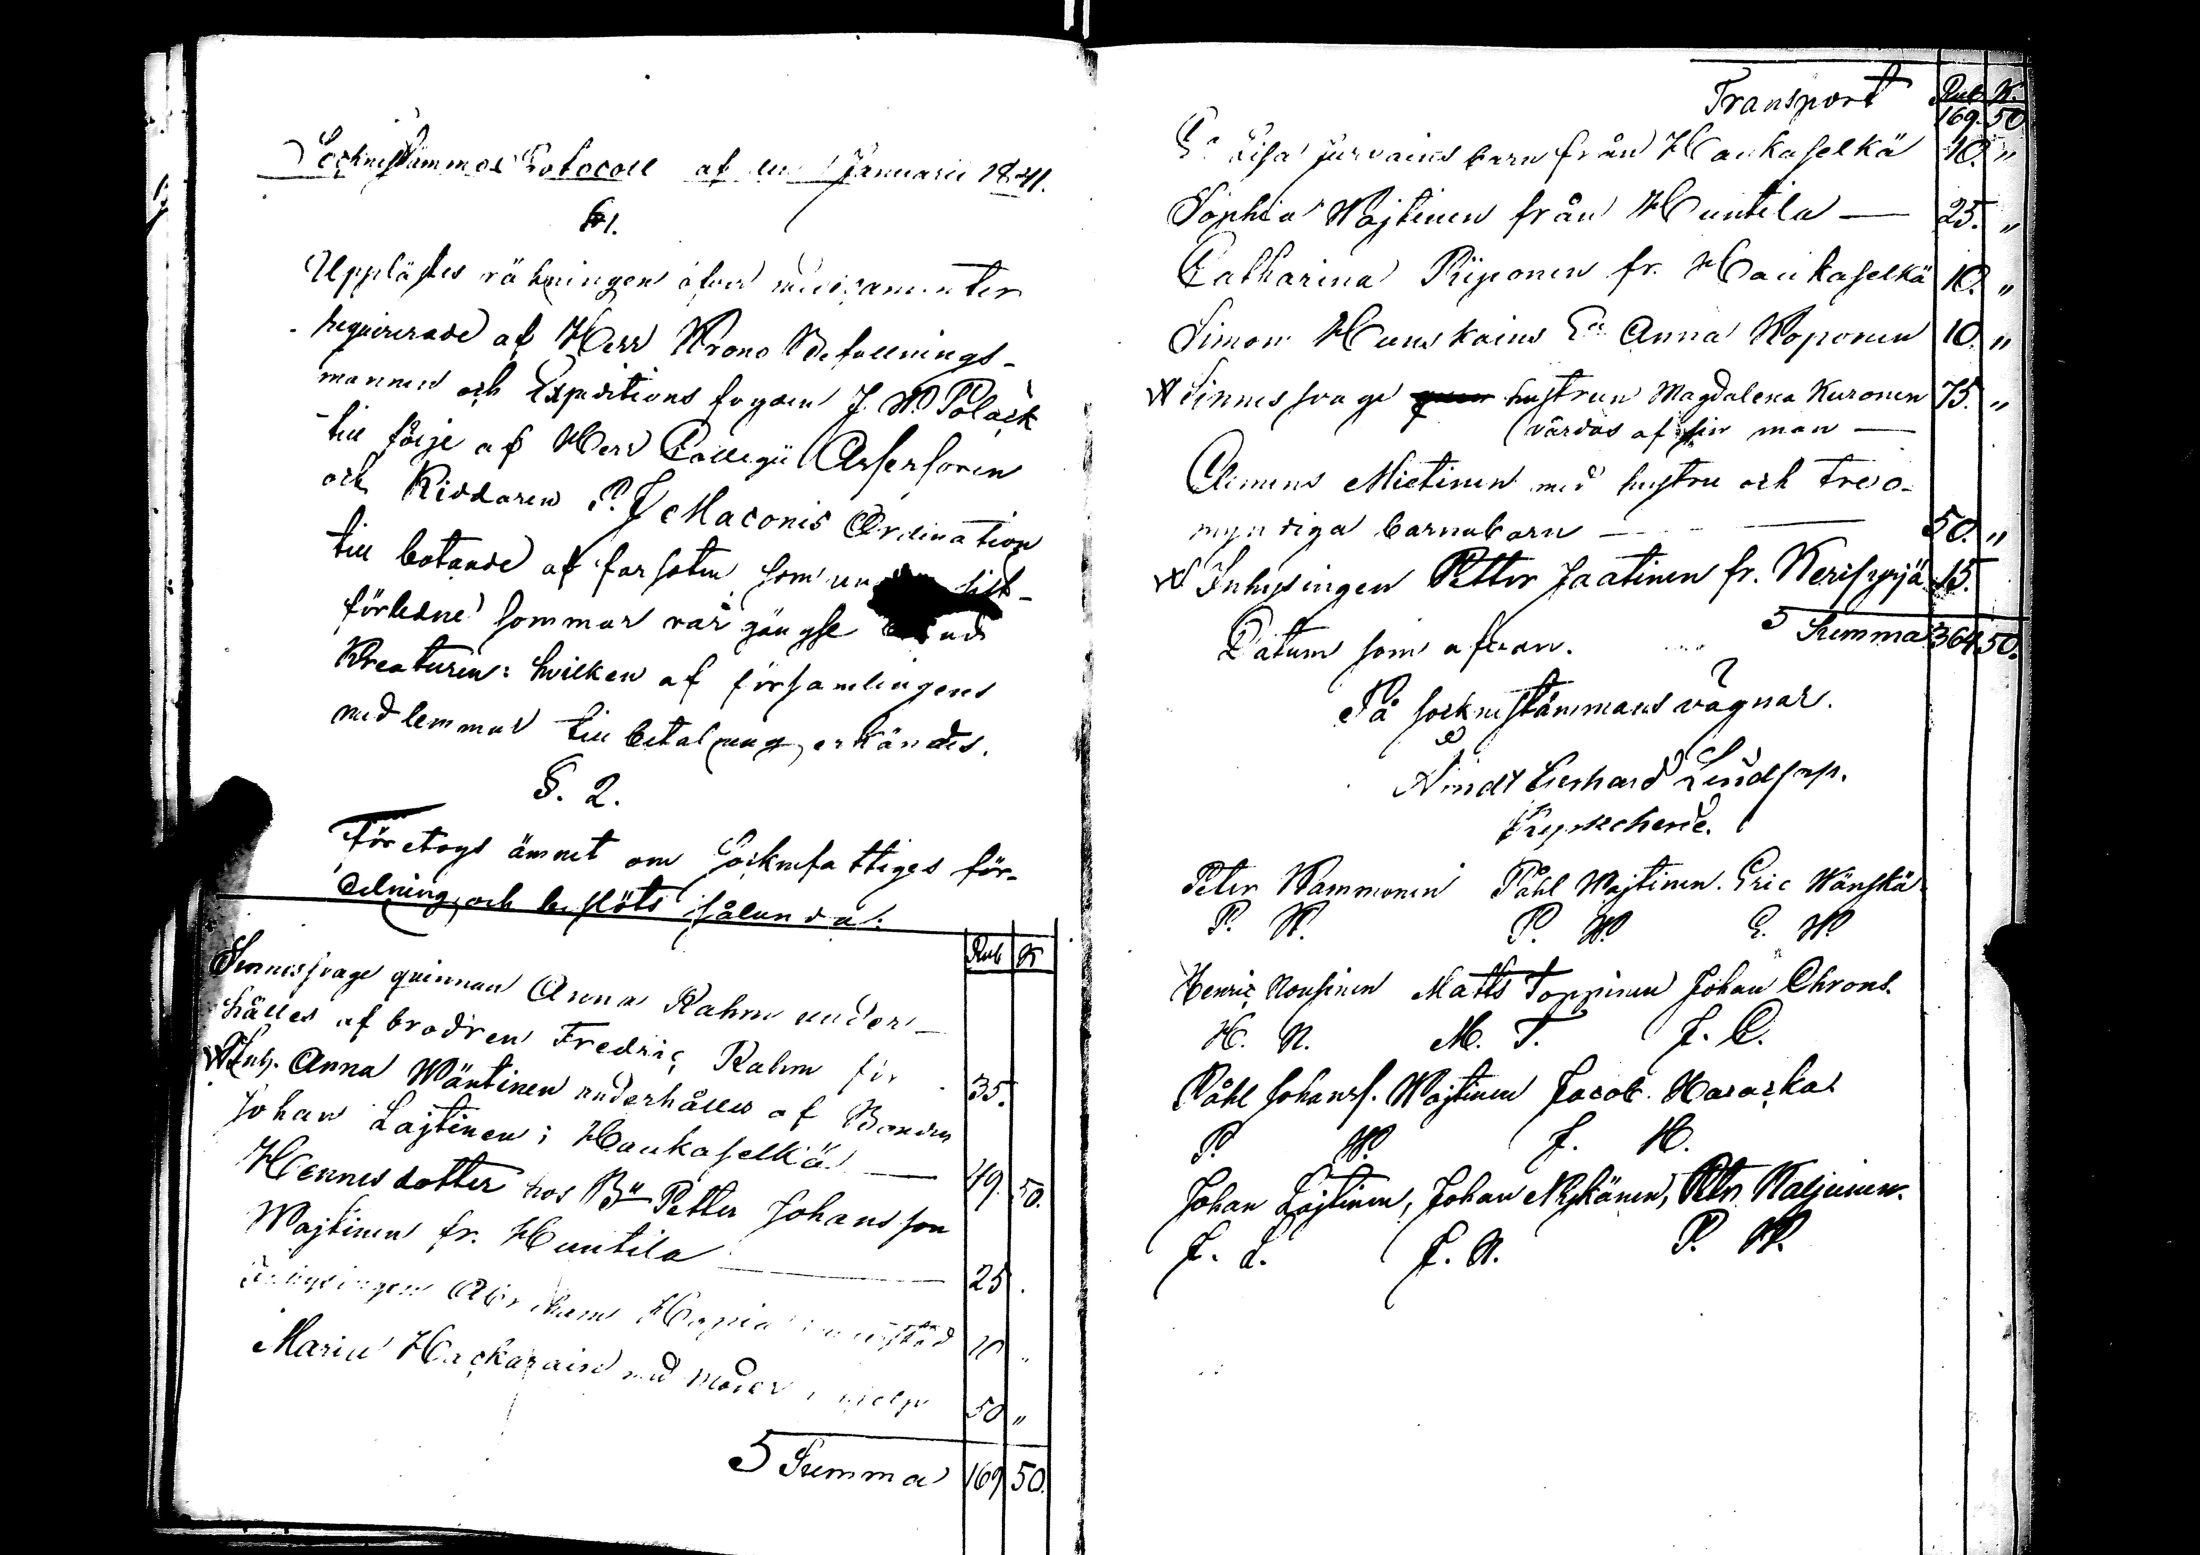 Socknestämmos Protocoll af den 1 Januarii 1841.
§ 1.
Upplästes räkningen öfver medicamenter
requirerade af Herr Krono Befallnings-
mannen och Expeditions fogden J. W. Polack
till följe af Herr Collegii Assessoren
och Riddaren P. J Maconis Ordination
till botande af farsoten som sist-
förledne sommar var gängse
Kreaturen: hvilken af församlingens
medlemmar till betalning erkändes.
§. 2.
Företogs ämnet om Socknefattiges för-
delning, och beslöts sålunda:
Rub K
Sinnessvage qvinnan Anna Rahm under-
hålles af brodren Fredric Rahm för 35.
Inh. Anna Wäntinen underhålles af Bonden
Johan Lajtinen i Haukaselkä — 49. 50.
Hennes dotter hos Bn Petter Johansson
Wajtinen fr. Huntila — 25 .
Inhysingen Abraham 10 „
Maria Hackarain med moder 50 „
Summa 169 50.
Transport Rub. K.
169. 50
Lisa Jurvains barn från Haukaselkä 10. „
Sophia Wajtinen från Huntila — 25. „
Catharina Piiponen fr. Haukaselkä 10. „
Simon Hunskains Ea Anna Koponen 10. „
Sinnessvage hustrun Magdalena Kuronen 75. „
vårdas af sin man —
Clemens Mietinen med hustru och tre o-
myndiga barnabarn — 50. „
Inhysingen Petter Jaatinen fr. Kerisyrjä 15.
Summa 364 50.
Datum som ofvan.
På socknestämmans vägnar.
Arndt Gerhard
Petter Wammonen Påhl Wajtinen. Eric Wänskä
P. W. P. W. E. W.
Henric Nousinen Matts Toppinen Johan Chrons.
H. N. M. T. J. C.
Påhl Johanss. Wajtinen Jacob Haracka
P. W. J. H.
Johan Lajtinen, Johan Nykänen, Petr Waljuinen.
J. L. J. N. P. W.